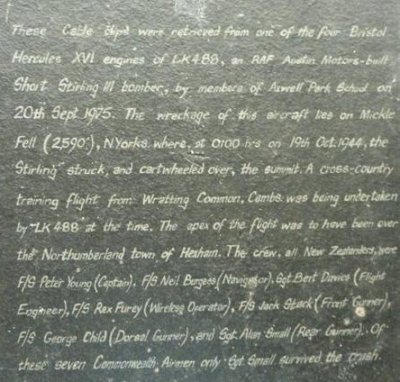 These Cable clips were retrieved from one of the four Bristol
Hercules XVI engines of LK488, an RAF Austin Motors-built
Short Stirling III bomber, by members of Axwell Park School on
20th Sept 1975. The wreckage of this aircraft lies on Mickle
Fell (2,590'), N.Yorks. where, at 0100 hrs on 19th Oct. 1944, the
Stirling struck, and cartwheeled over, the summit. A cross-country
training flight from Wratting Common, Cambs. was being undertaken
by LK488 at the time. The apex of the flight was to have been over
the Northumberland town of Hexham. The crew, all New Zealanders, were
F/S Peter Young (Captain), F/S Neil Burgess (Navigator), Sgt Bert Davies (Flight
Engineer), F/S Rex Furey (Wireless Operator), F/S Jack Stack (Front Gunner),
F/S George Child (Dorsal Gunner), and Sgt. Alan Small (Rear Gunner). Of
these seven Commonwealth Airmen only Sgt Small survived the crash.